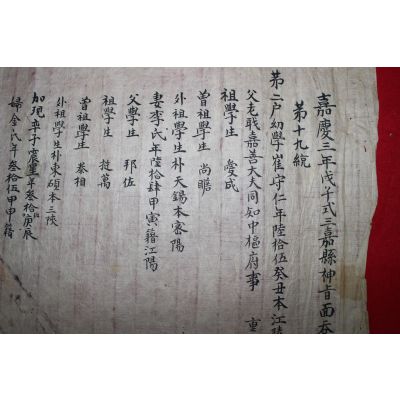 嘉慶三年戊午式三嘉縣神旨面吞
第十九統
第二戶幼學崔守仁年陸拾伍癸丑本江陵
父老職嘉善大夫同知中樞府事 重
祖學生 愛成
曾祖學生 尚瞻
外祖學生朴天錫本密陽
妻李氏年陸拾肆甲寅籍江陽
父學生 邦佐
祖學生 挺萬
曾祖學生 泰相
外祖學生朴東碩本三陜
加現率子震 年叁拾 庚辰
婦金氏年叁拾伍甲申籍